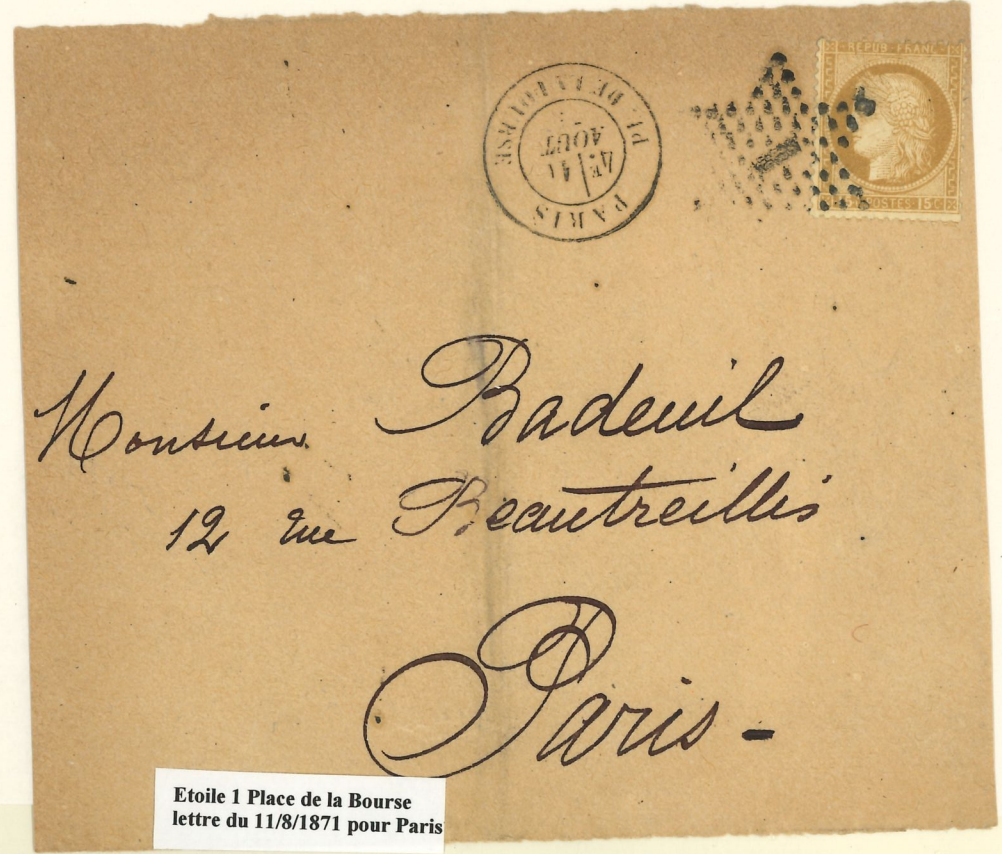 REPUB FRANC
POSTES 15c
PL. DE LA BOURSE
AOUT
4E
PARIS
1
Monsieur Badeuil
12 rue Beautreillis
Paris -
Etoile 1 Place de la Bourse
lettre du 11/8/1871 pour Paris